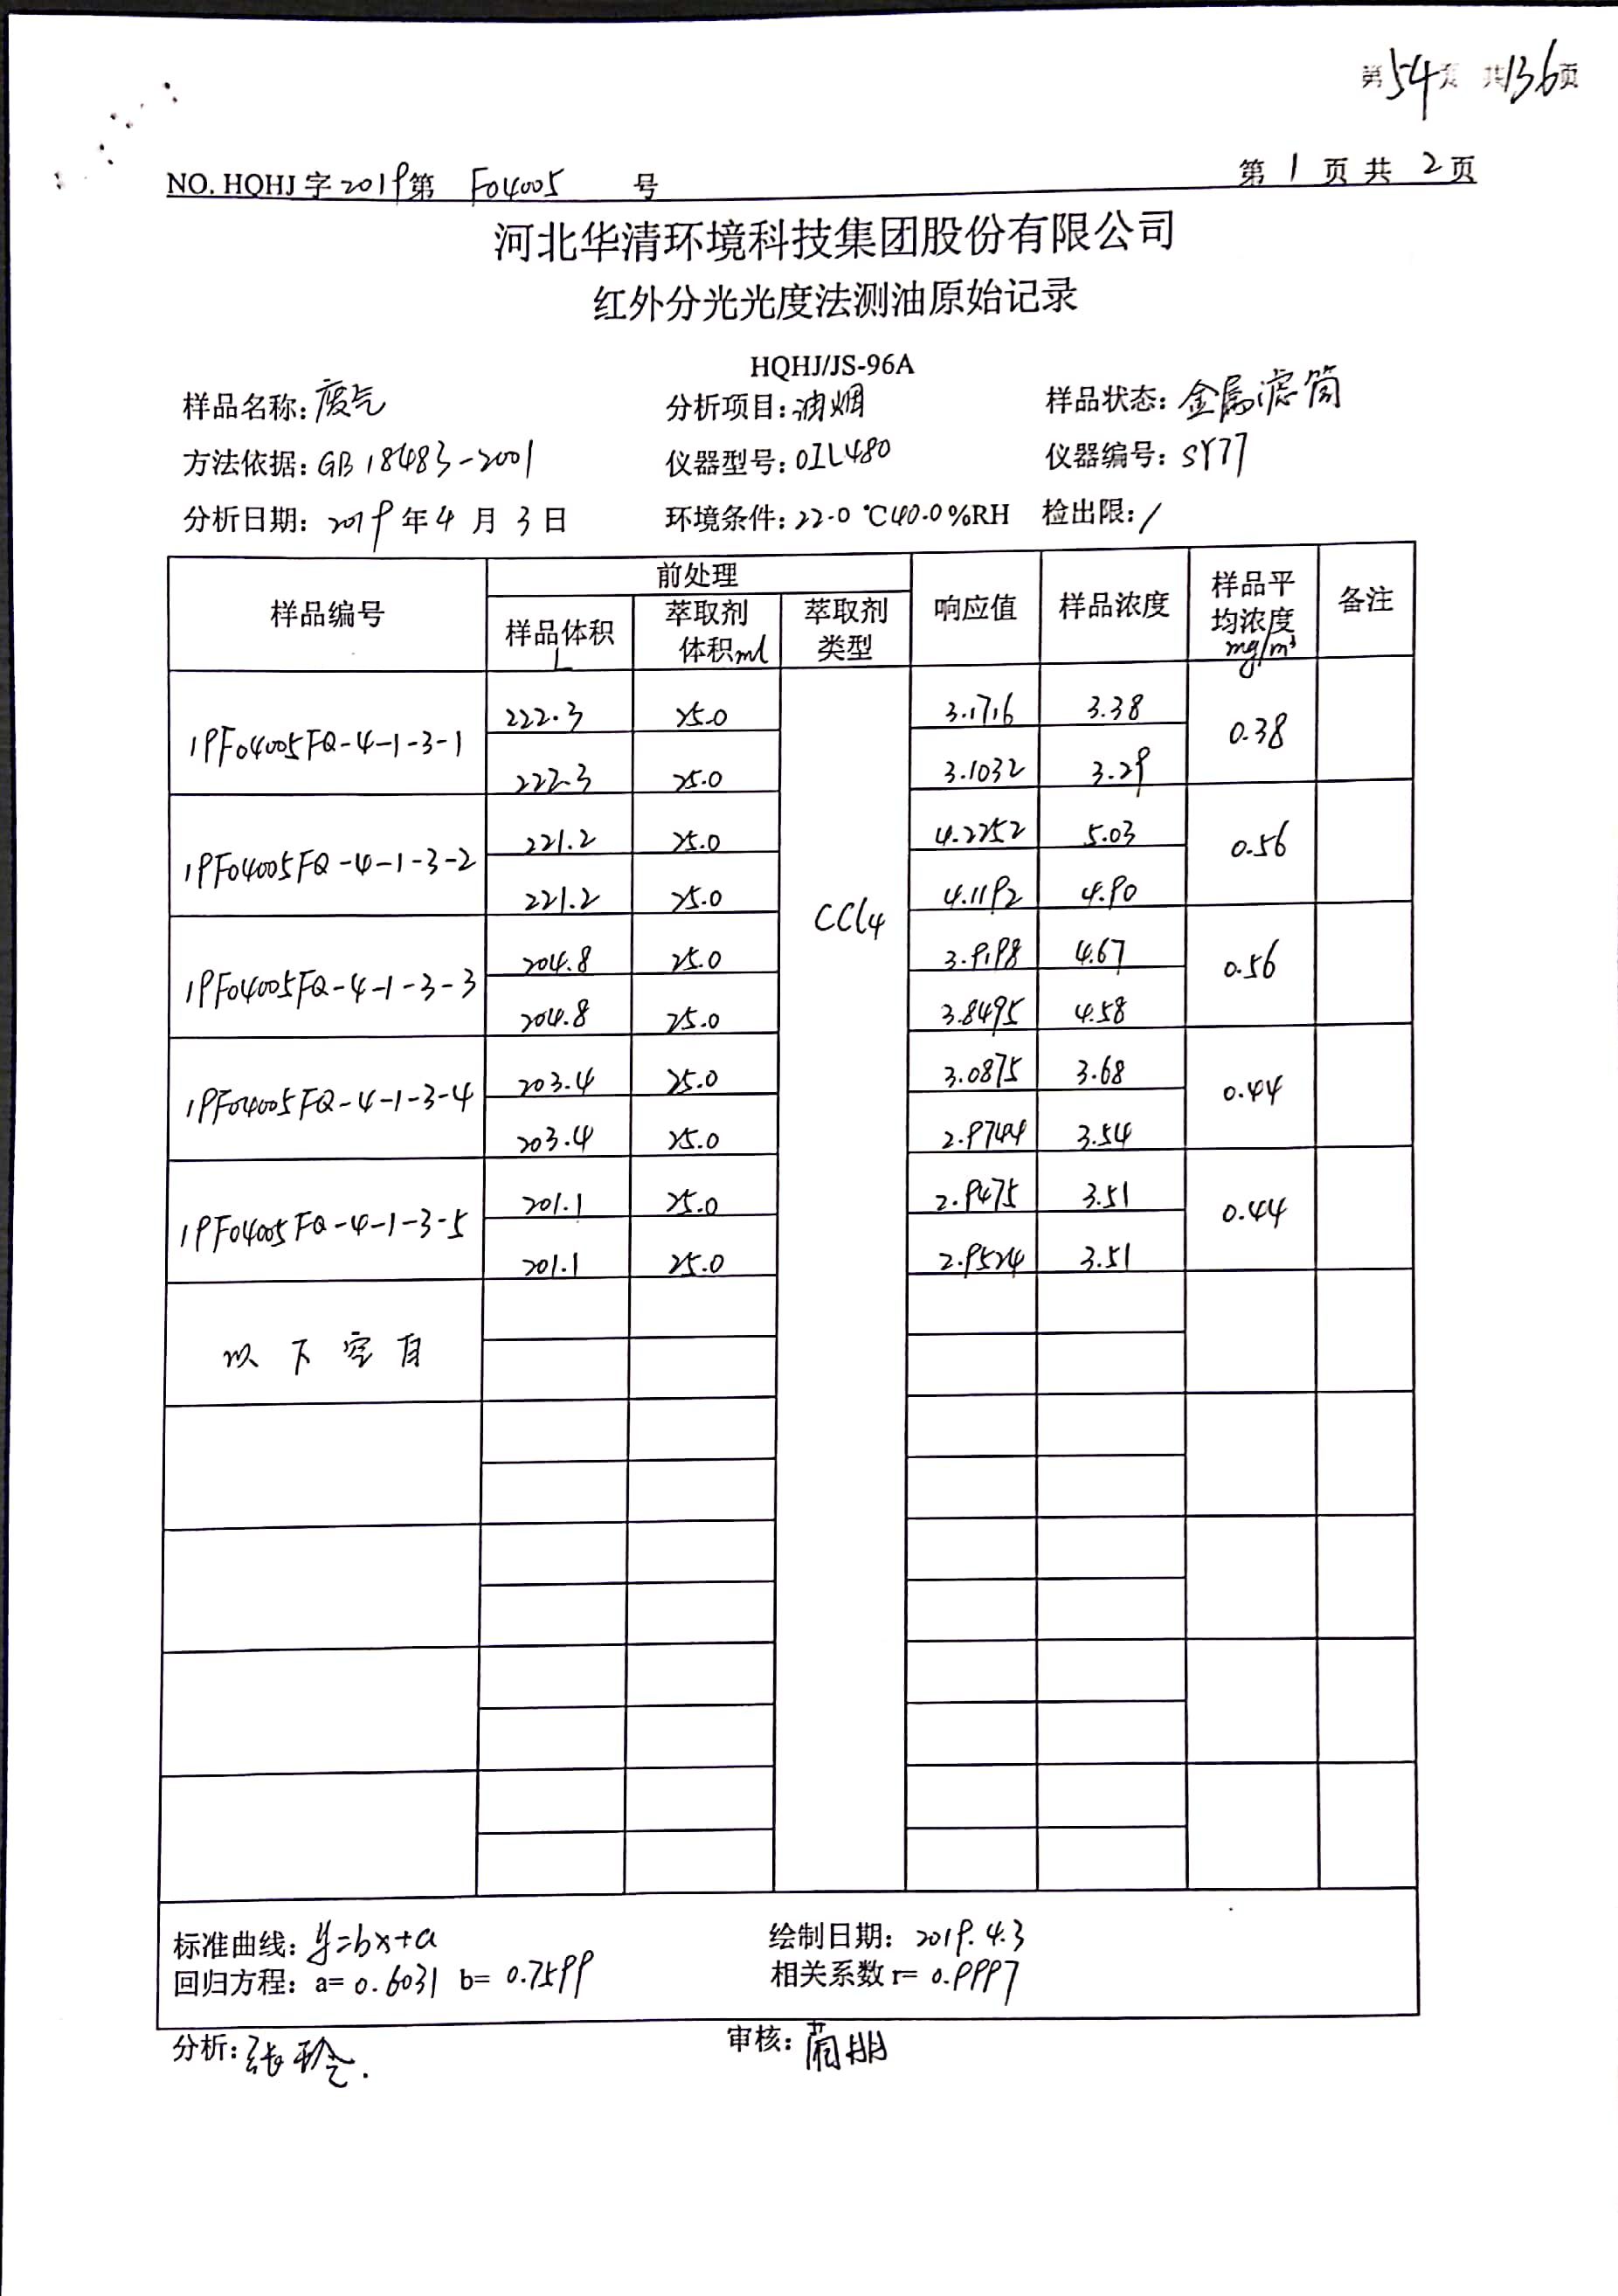 第54页 共136页
NO. HQHJ 字2019第 F04005 号 第 1 页 共 2 页
河北华清环境科技集团股份有限公司
红外分光光度法测油原始记录
HQHJ/JS-96A
样品名称:废气 分析项目:油烟 样品状态:金属滤筒
方法依据:GB 18483-2001 仪器型号:OIL480 仪器编号:SY77
分析日期:2019年4月3日 环境条件:22.0 ℃40.0%RH 检出限:/
样品编号 前处理 响应值 样品浓度 样品平均浓度mg/m³ 备注
样品体积L 萃取剂体积ml 萃取剂类型
19F04005FQ-4-1-3-1 222.3 25.0 3.1716 3.38 0.38
222.3 25.0 3.1032 3.29
19F04005FQ-4-1-3-2 221.2 25.0 4.2252 5.03 0.56
221.2 25.0 4.1192 4.90
CCl4
19F04005FQ-4-1-3-3 204.8 25.0 3.9198 4.67 0.56
204.8 25.0 3.8495 4.58
19F04005FQ-4-1-3-4 203.4 25.0 3.0875 3.68 0.44
203.4 25.0 2.9744 3.54
19F04005FQ-4-1-3-5 201.1 25.0 2.9475 3.51 0.44
201.1 25.0 2.9524 3.51
以下空白
标准曲线:y=bx+a 绘制日期:2019.4.3
回归方程:a=0.6031 b=0.7599 相关系数 r=0.9997
分析:张玲. 审核: